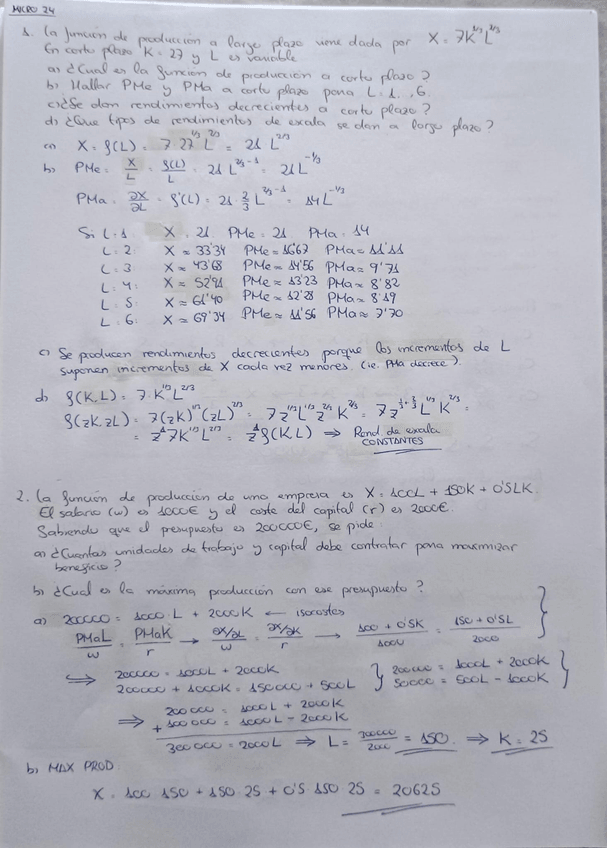 MICRO 24
1. La función de producción a largo plazo viene dada por X = 7K^1/3 L^2/3
En corto plazo K = 27 y L es variable
a) ¿Cual es la función de producción a corto plazo?
b) Hallar PMe y PMa a corto plazo para L = 1...6.
c) ¿Se dan rendimientos decrecientes a corto plazo?
d) ¿Que tipos de rendimientos de escala se dan a largo plazo?
a) X = f(L) = 7·27^1/3 L^2/3 = 21 L^2/3
b) PMe = X/L = f(L)/L = 21 L^2/3-1 = 21 L^-1/3
PMa = ∂X/∂L = f'(L) = 21·2/3 L^2/3-1 = 14 L^-1/3
Si L=1 X = 21 PMe = 21 PMa = 14
L=2: X ≈ 33'34 PMe ≈ 16'67 PMa ≈ 11'11
L=3 X ≈ 43'68 PMe ≈ 14'56 PMa ≈ 9'71
L=4: X ≈ 52'91 PMe ≈ 13'23 PMa ≈ 8'82
L=5: X ≈ 61'40 PMe ≈ 12'28 PMa ≈ 8'19
L=6: X ≈ 69'34 PMe ≈ 11'56 PMa ≈ 7'70
c) Se producen rendimientos decrecientes porque los incrementos de L
suponen incrementos de X cada vez menores. (ie. PMa decrece).
d) f(K,L) = 7·K^1/3 L^2/3
f(zK,zL) = 7(zK)^1/3 (zL)^2/3 = 7z^1/3 L^1/3 z^2/3 K^2/3 = 7z^1/3+2/3 L^1/3 K^2/3 =
= z^1 7K^1/3 L^2/3 = z^1 f(K,L) ⇒ Rend de escala
CONSTANTES
2. La función de producción de una empresa es X = 100L + 150K + 0'5LK.
El salario (w) es 1000€ y el coste del capital (r) es 2000€.
Sabiendo que el presupuesto es 200000€, se pide:
a) ¿Cuantas unidades de trabajo y capital debe contratar para maximizar
beneficio?
b) ¿Cual es la máxima producción con ese presupuesto?
a) 200000 = 1000·L + 2000K ← isocostes
PMaL/w = PMaK/r → ∂X/∂L/w = ∂X/∂K/r → 100 + 0'5K/1000 = 150 + 0'5L/2000
↪ 200000 = 1000L + 2000K } 200000 = 1000L + 2000K }
200000 + 1000K = 150000 + 500L } 50000 = 500L - 1000K }
⇒ 200000 = 1000L + 2000K
+ 100000 = 1000L - 2000K
300000 = 2000L ⇒ L = 300000/2000 = 150. ⇒ K = 25
b) MAX PROD:
X = 100·150 + 150·25 + 0'5·150·25 = 20625